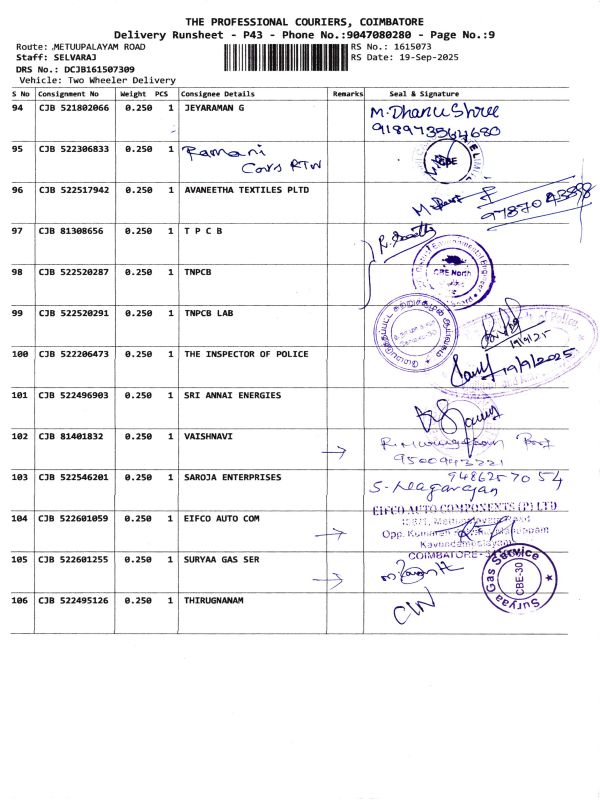 THE PROFESSIONAL COURIERS, COIMBATORE
Delivery Runsheet - P43 - Phone No.:9047080280 - Page No.:9
Route: METUUPALAYAM ROAD
RS No.: 1615073
Staff: SELVARAJ
RS Date: 19-Sep-2025
DRS No.: DCJB161507309
Vehicle: Two Wheeler Delivery
S No Consignment No Weight PCS Consignee Details Remarks Seal & Signature
94 CJB 521802066 0.250 1 JEYARAMAN G
M. Dhanu Shree
95 CJB 522306833 0.250 1 Ramani
CBE
96 CJB 522517942 0.250 1 AVANEETHA TEXTILES PLTD
97 CJB 81308656 0.250 1 T P C B
98 CJB 522520287 0.250 1 TNPCB
CBE North
99 CJB 522520291 0.250 1 TNPCB LAB
19/9/25
100 CJB 522206473 0.250 1 THE INSPECTOR OF POLICE
19/9/2025
101 CJB 522496903 0.250 1 SRI ANNAI ENERGIES
102 CJB 81401832 0.250 1 VAISHNAVI
9500943221
103 CJB 522546201 0.250 1 SAROJA ENTERPRISES
9486257054
S. Nagarajan
104 CJB 522601059 0.250 1 EIFCO AUTO COM
EIFCO AUTO COMPONENTS (P) LTD
Kavundampalayam
COIMBATORE
105 CJB 522601255 0.250 1 SURYAA GAS SER
Suryaa Gas Service
CBE-30
106 CJB 522495126 0.250 1 THIRUGNANAM